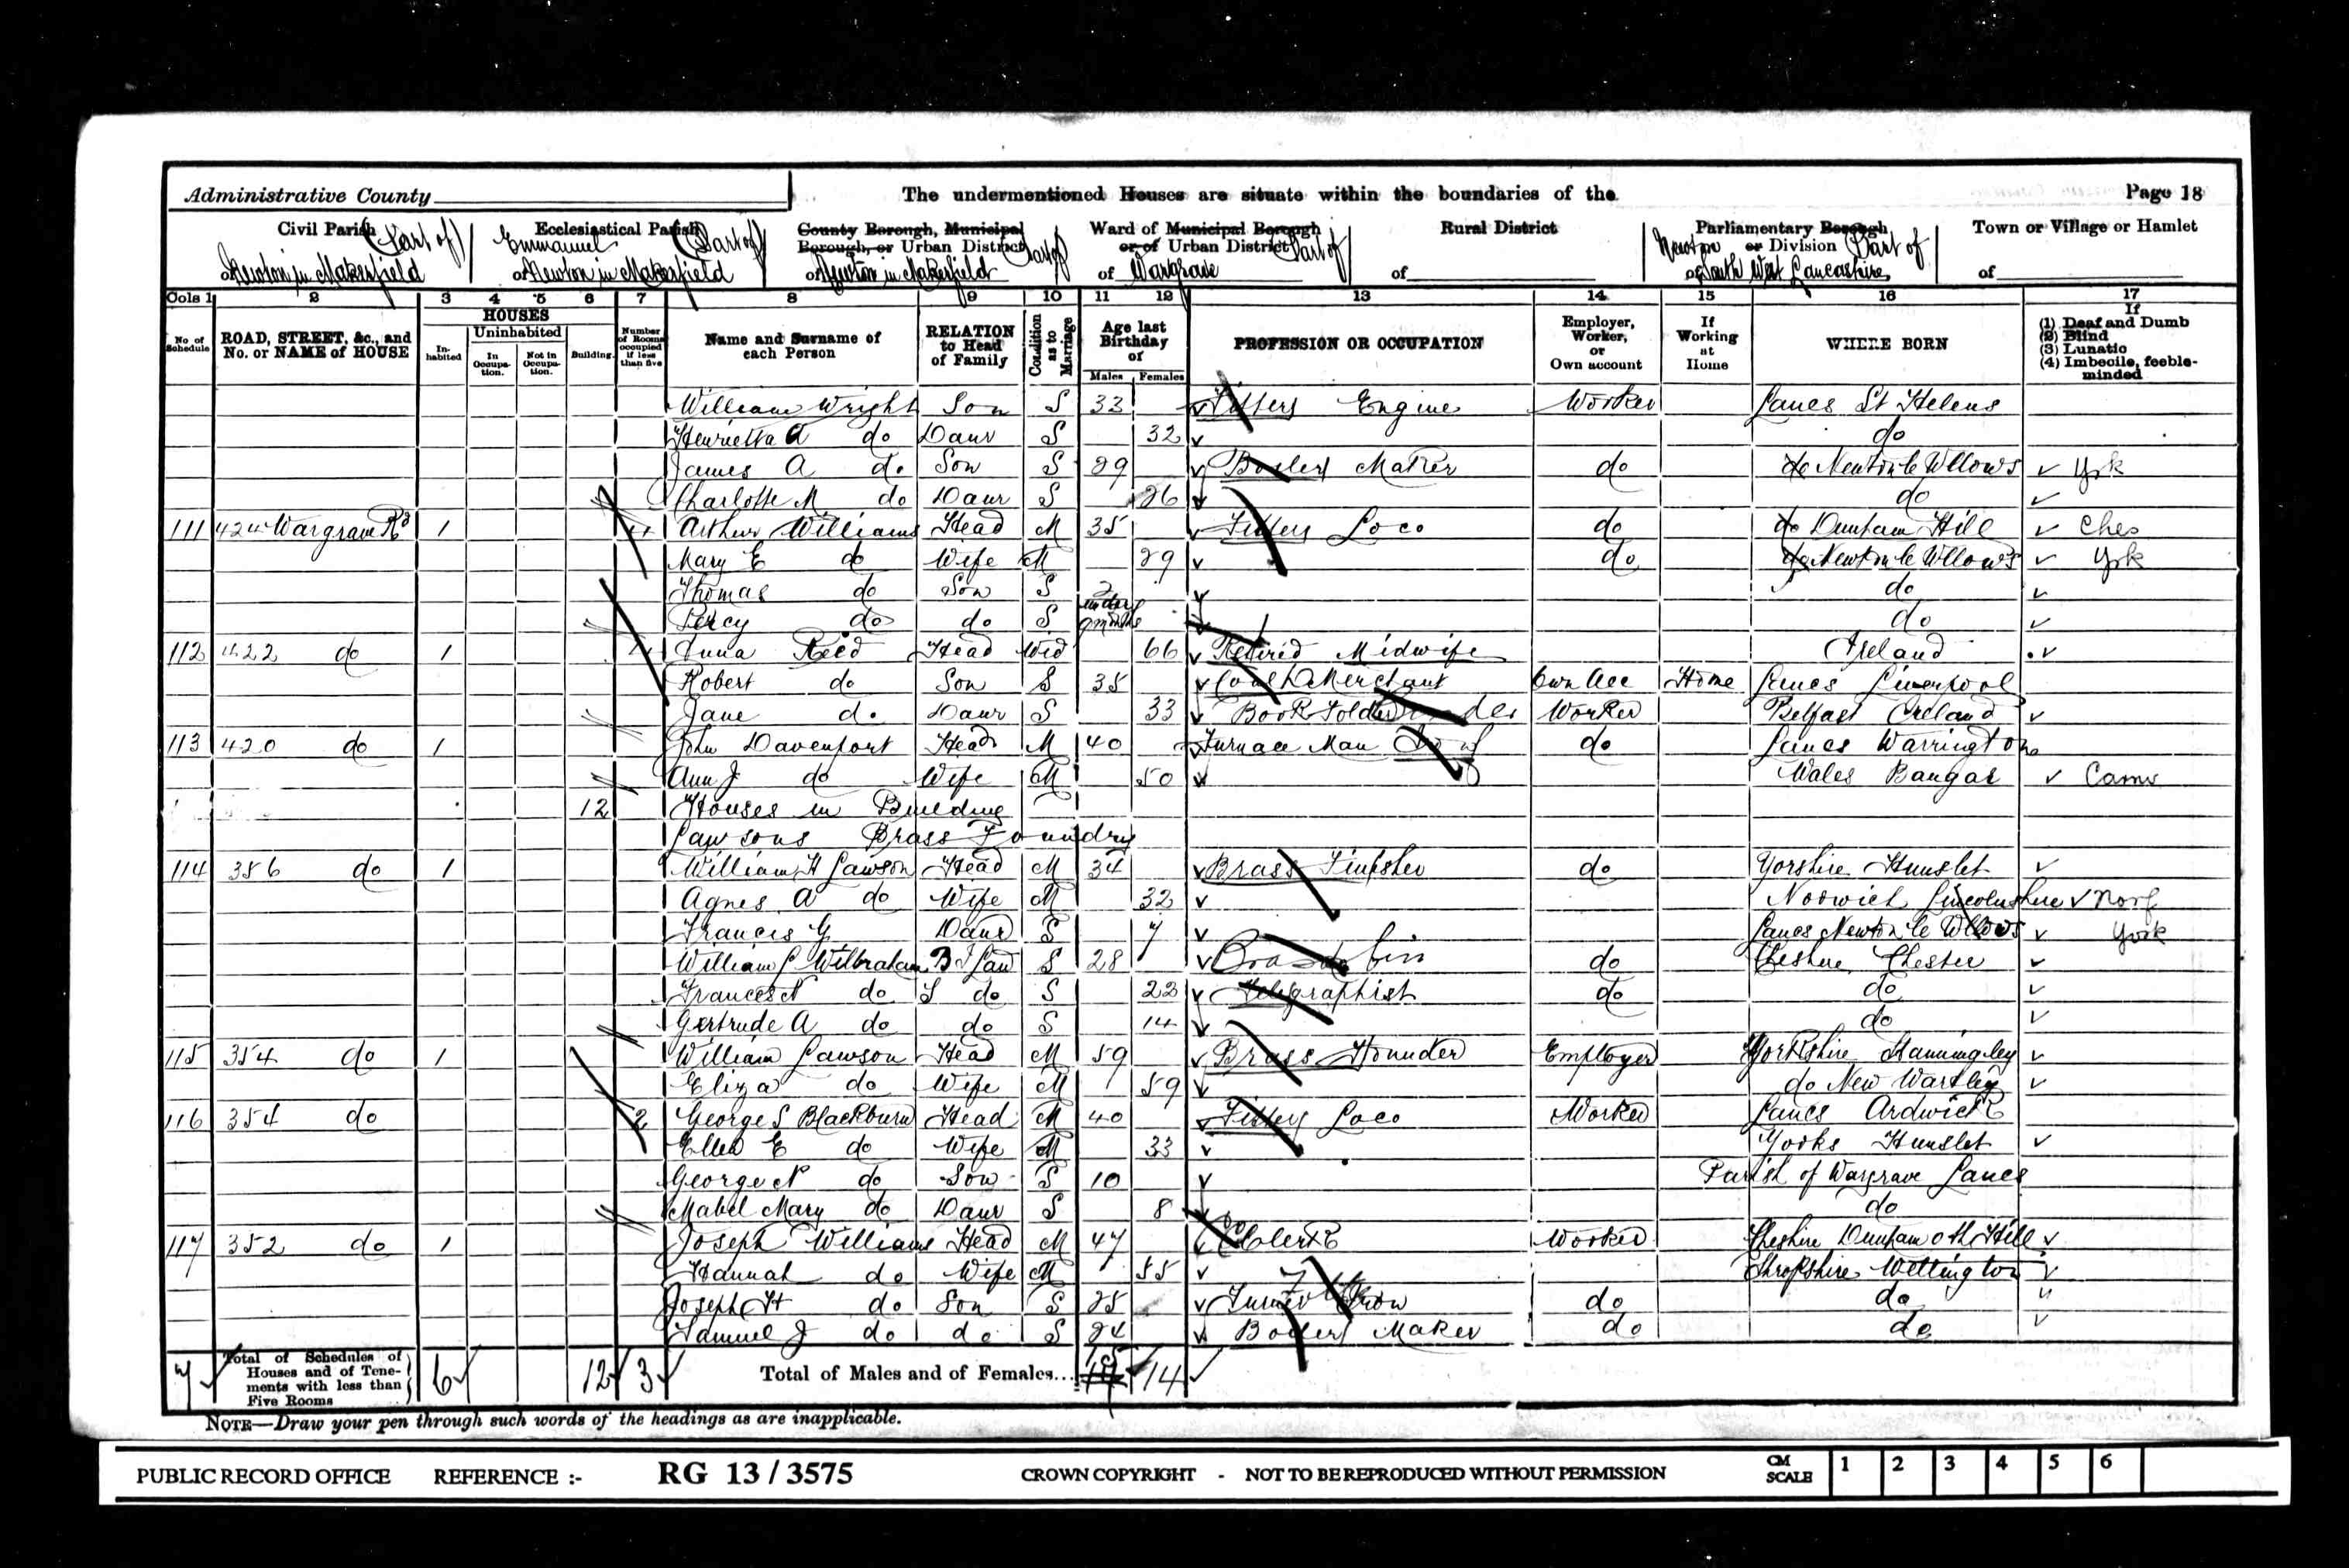 Administrative County The undermentioned Houses are situate within the boundaries of the Page 18
Civil Parish (Part of) Ecclesiastical Parish (Part of) County Borough, Municipal Borough, or Urban District Part of Ward of Municipal Borough or of Urban District Part of Rural District Parliamentary Borough or Division Part of Town or Village or Hamlet
of Newton in Makerfield Emmanuel of Newton in Makerfield of Newton in Makerfield of Wargrave of Newton of South West Lancashire of
Cols 1 2 3 4 5 6 7 8 9 10 11 12 13 14 15 16 17
No of Schedule ROAD, STREET, &c., and No. or NAME of HOUSE HOUSES Inhabited Uninhabited In Occupation. Not in Occupation. Building. Number of Rooms occupied if less than five Name and Surname of each Person RELATION to Head of Family Condition as to Marriage Age last Birthday of Males Females PROFESSION OR OCCUPATION Employer, Worker, or Own account If Working at Home WHERE BORN If (1) Deaf and Dumb (2) Blind (3) Lunatic (4) Imbecile, feeble-minded
William Wright Son S 33 Fitters Engine Worker Lancs St Helens
Henrietta A do Daur S 32 do
James A do Son S 29 Boiler Maker do do Newton le Willows Yrk
Charlotte M do Daur S 26 do
111 424 Wargrave Rd 1 4 Arthur Williams Head M 35 Fitters Loco do do Dunham Hill Ches
Mary E do Wife M 29 do do Newton le Willows Yrk
Thomas do Son S 2 do
Percy do do S under 9 months do
112 422 do 1 4 Anna Reed Head Wid 66 Retired Midwife Ireland
Robert do Son S 35 Merchant Own Acc Home Lancs Liverpool
Jane do Daur S 33 Book Folder Worker Belfast Ireland
113 420 do 1 John Davenport Head M 40 Furnace Man do Lancs Warrington
Ann J do Wife M 50 Wales Bangor Carnv
12 Houses in Building
Lawsons Brass Foundry
114 356 do 1 William H Lawson Head M 34 Brass Finisher do Yorshire Hunslet
Agnes A do Wife M 32 Norwich Lincolnshire Norf
Francis G Daur S 7 Lancs Newton le Willows York
William L Wilbraham B I Law S 28 Brass do Cheshire Chester
Frances N do S do S 22 Telegraphist do do
Gertrude A do do S 14 do
115 354 do 1 William Lawson Head M 59 Brass Founder Employer Yorkshire Stanningley
Eliza do Wife M 59 do New Wortley
116 354 do 2 George S Blackburn Head M 40 Fitter Loco Worker Lancs Ardwick
Ellen E do Wife M 33 Yorks Hunslet
George N do Son S 10 Parish of Wargrave Lancs
Mabel Mary do Daur S 8 do
117 352 do 1 Joseph Williams Head M 47 Clerk Worker Cheshire Dunham oth Hill
Hannah do Wife M 55 Shropshire Wellington
Joseph H do Son S 25 Turner Iron do do
Samuel J do do S 24 Boiler Maker do do
7 Total of Schedules of Houses and of Tenements with less than Five Rooms 6 12 3 Total of Males and of Females... 15 14
NOTE—Draw your pen through such words of the headings as are inapplicable.
PUBLIC RECORD OFFICE REFERENCE :- RG 13 / 3575 CROWN COPYRIGHT - NOT TO BE REPRODUCED WITHOUT PERMISSION CM SCALE 1 2 3 4 5 6